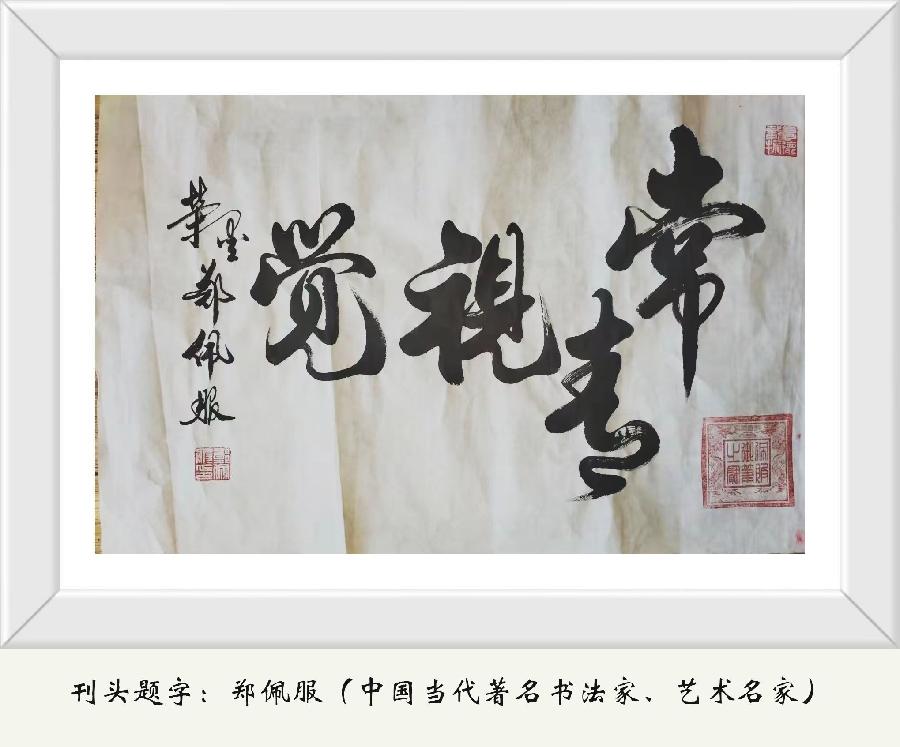 常青
視覺
荣墨郑佩服
刊头题字：郑佩服（中国当代著名书法家、艺术名家）